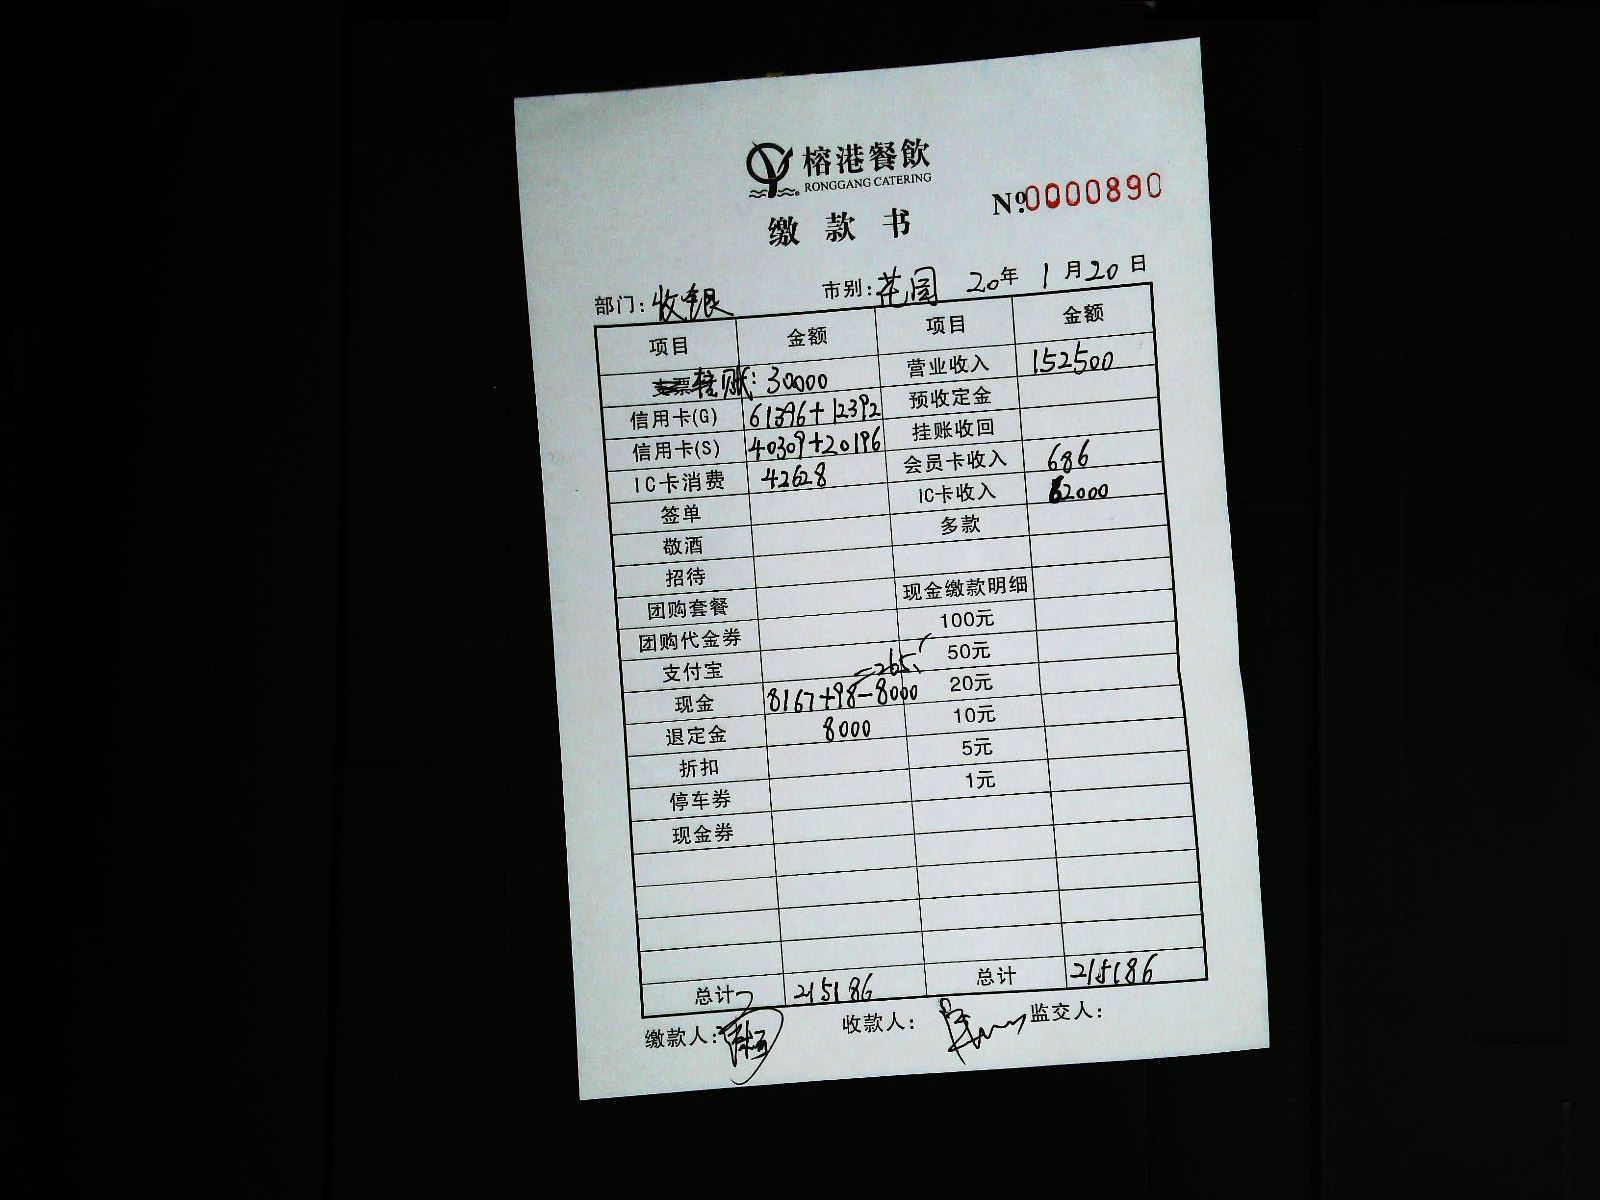 榕港餐飲
RONGGANG CATERING
缴款书 №0000890
部门:收银 市别:花园 20年1月20日
项目 金额 项目 金额
转账: 30000 营业收入 152500
信用卡(G) 61396+12392 预收定金
信用卡(S) 40309+20196 挂账收回
IC卡消费 42628 会员卡收入 686
签单 IC卡收入 62000
敬酒 多款
招待
团购套餐 现金缴款明细
团购代金券 100元
支付宝 =265 50元
现金 8167+98-8000 20元
退定金 8000 10元
折扣 5元
停车券 1元
现金券
总计 215186 总计 215186
缴款人: 收款人: 监交人: